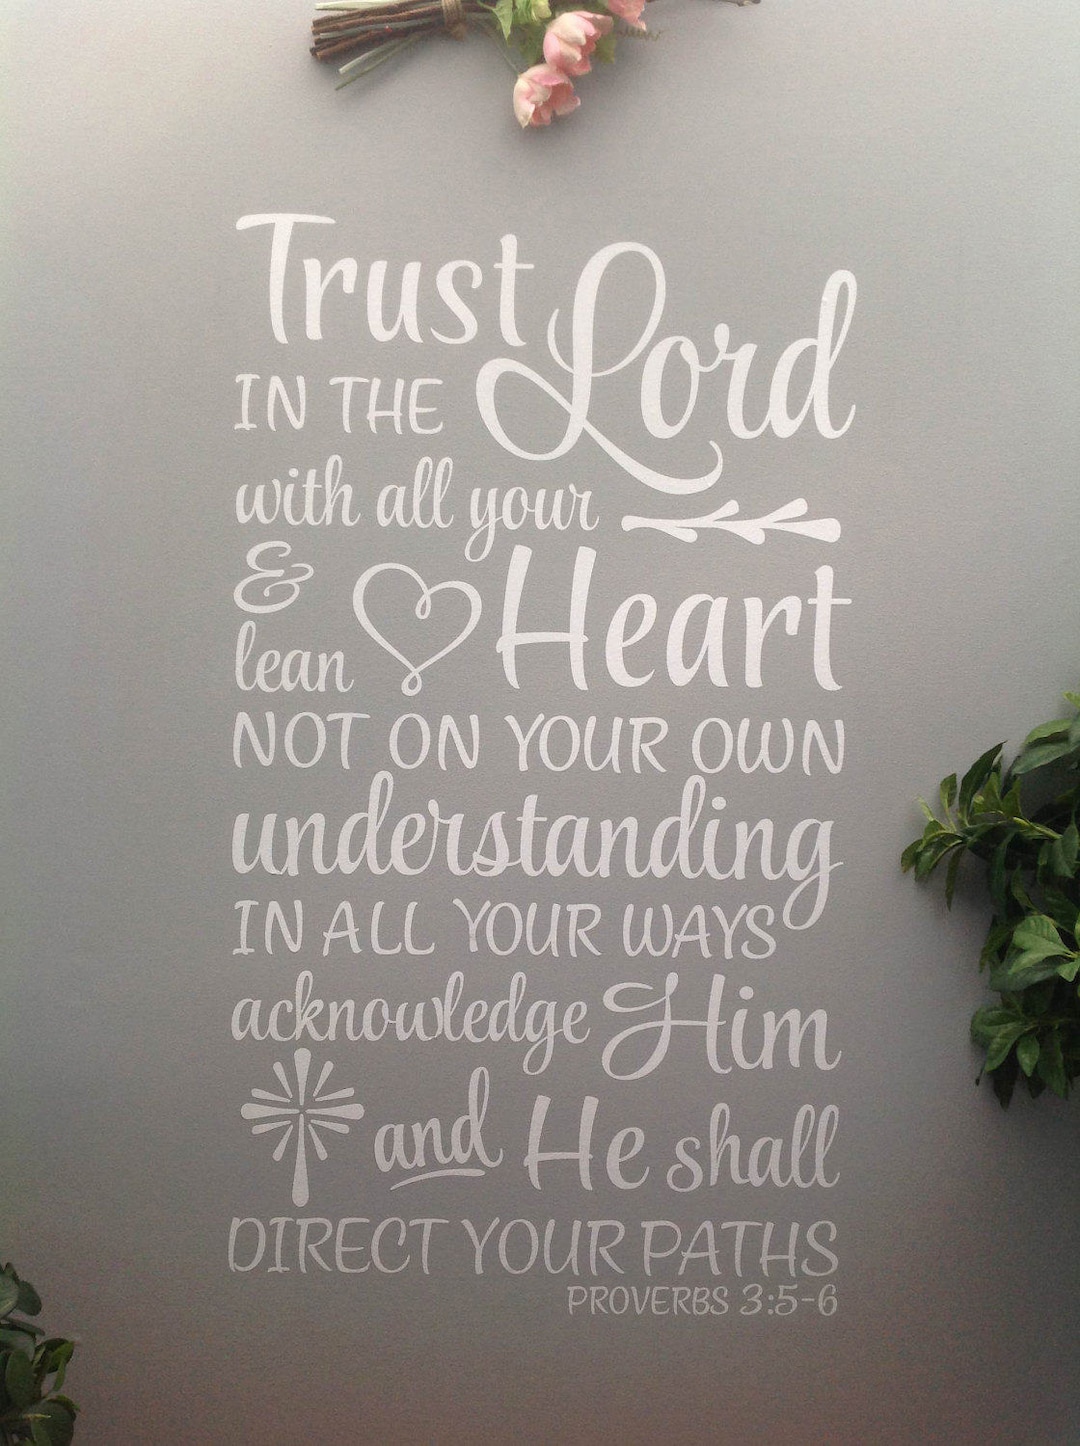 Trust
IN THE Lord
with all your
& Heart
lean
NOT ON YOUR OWN
understanding
IN ALL YOUR WAYS
acknowledge Him
and He shall
DIRECT YOUR PATHS
PROVERBS 3:5-6